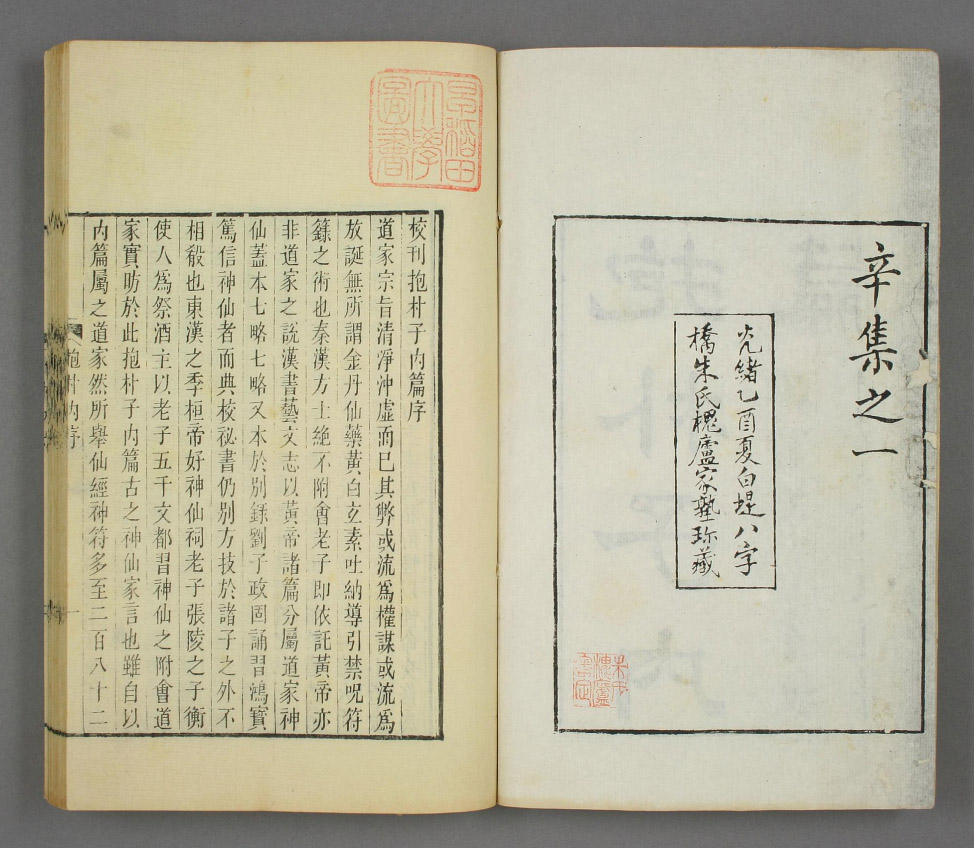 辛集之一
光緒乙酉夏白堤八字
橋朱氏槐廬家塾珍藏
早稻田
大學
圖書
校刊抱朴子内篇序
道家宗旨清淨沖虛而已其弊或流爲權謀或流爲
放誕無所謂金丹仙藥黃白玄素吐納導引禁呪符
籙之術也秦漢方士絶不附會老子即依託黃帝亦
非道家之説漢書藝文志以黃帝諸篇分屬道家神
仙蓋本七略七略又本於别錄劉子政固誦習鴻寶
篤信神仙者而典校祕書仍别方技於諸子之外不
相殽也東漢之季桓帝好神仙祠老子張陵之子衡
使人爲祭酒主以老子五千文都習神仙之附會道
家實昉於此抱朴子内篇古之神仙家言也雖自以
内篇屬之道家然所舉仙經神符多至二百八十二
抱朴内序
一